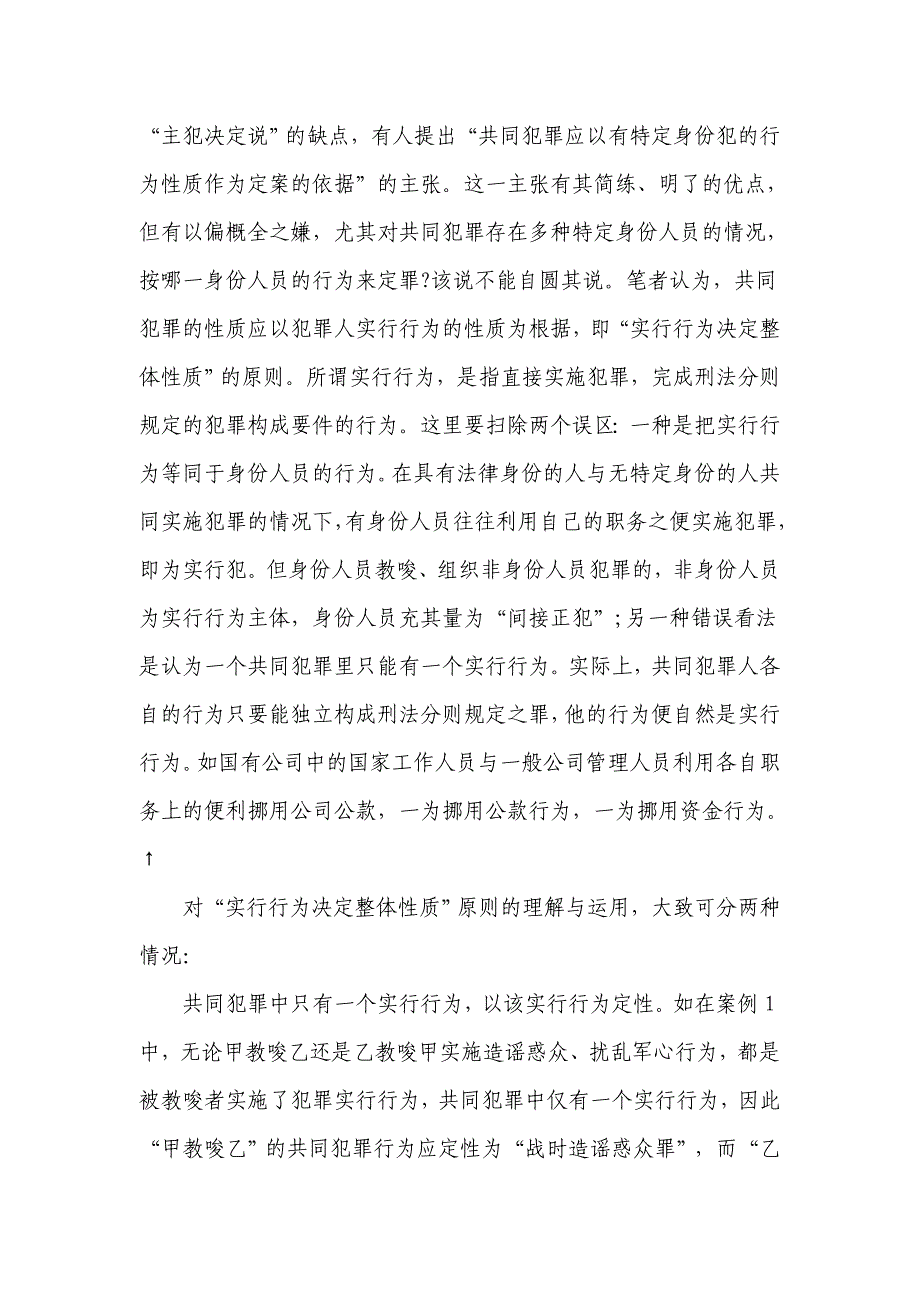 “主犯决定说”的缺点，有人提出“共同犯罪应以有特定身份犯的行
为性质作为定案的依据”的主张。这一主张有其简练、明了的优点，
但有以偏概全之嫌，尤其对共同犯罪存在多种特定身份人员的情况，
按哪一身份人员的行为来定罪?该说不能自圆其说。笔者认为，共同
犯罪的性质应以犯罪人实行行为的性质为根据，即“实行行为决定整
体性质”的原则。所谓实行行为，是指直接实施犯罪，完成刑法分则
规定的犯罪构成要件的行为。这里要扫除两个误区：一种是把实行行
为等同于身份人员的行为。在具有法律身份的人与无特定身份的人共
同实施犯罪的情况下，有身份人员往往利用自己的职务之便实施犯罪，
即为实行犯。但身份人员教唆、组织非身份人员犯罪的，非身份人员
为实行行为主体，身份人员充其量为“间接正犯”；另一种错误看法
是认为一个共同犯罪里只能有一个实行行为。实际上，共同犯罪人各
自的行为只要能独立构成刑法分则规定之罪，他的行为便自然是实行
行为。如国有公司中的国家工作人员与一般公司管理人员利用各自职
务上的便利挪用公司公款，一为挪用公款行为，一为挪用资金行为。
↑
对“实行行为决定整体性质”原则的理解与运用，大致可分两种
情况：
共同犯罪中只有一个实行行为，以该实行行为定性。如在案例1
中，无论甲教唆乙还是乙教唆甲实施造谣惑众、扰乱军心行为，都是
被教唆者实施了犯罪实行行为，共同犯罪中仅有一个实行行为，因此
“甲教唆乙”的共同犯罪行为应定性为“战时造谣惑众罪”，而“乙